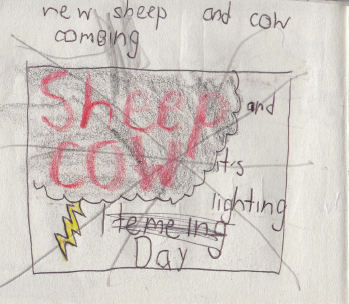 new sheep and cow
combing
Sheep and
COW it's
lighting
Day